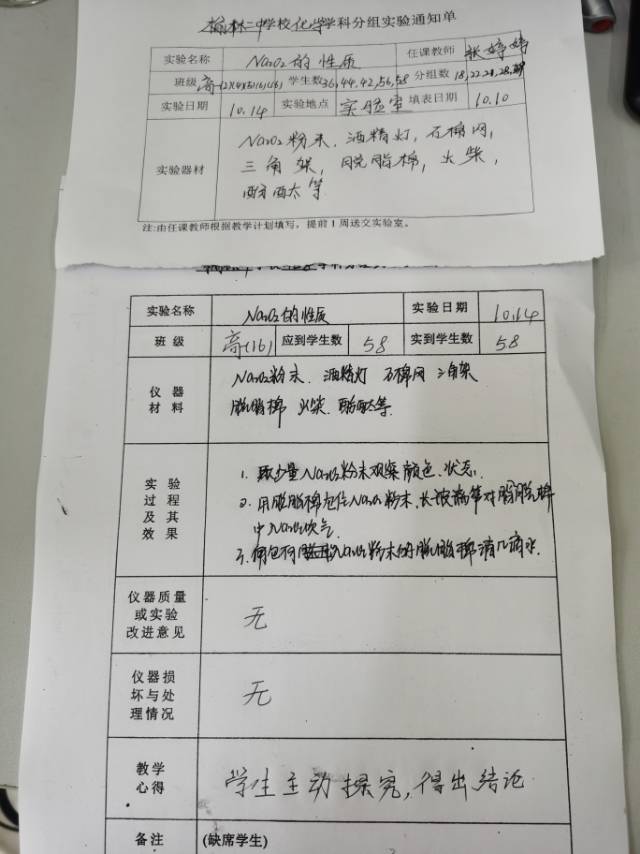 榆林二中学校化学学科分组实验通知单
实验名称 Na₂O₂的性质 任课教师 张婷婷
班级 高 学生数36,44,42,56,58 分组数 18,22,21,28
实验日期 10.14 实验地点 实验室 填表日期 10.10
Na₂O₂粉末,酒精灯,石棉网,
实验器材 三角架,脱脂棉,火柴,
酚酞等
注:由任课教师根据教学计划填写,提前1周送交实验室。
实验名称 Na₂O₂的性质 实验日期 10.14
班级 高(16) 应到学生数 58 实到学生数 58
仪器 Na₂O₂粉末、酒精灯 石棉网 三角架
材料 脱脂棉 火柴、酚酞等.
实验
过程
及其
效果
1. 取少量Na₂O₂粉末观察颜色、状态.
2. 用脱脂棉包住Na₂O₂粉末,长玻璃管对脱脂棉
中Na₂O₂吹气
3. 包有Na₂O₂粉末的脱脂棉滴几滴水.
仪器质量
或实验 无
改进意见
仪器损
坏与处 无
理情况
教学
心得 学生主动探究,得出结论
备注 (缺席学生)